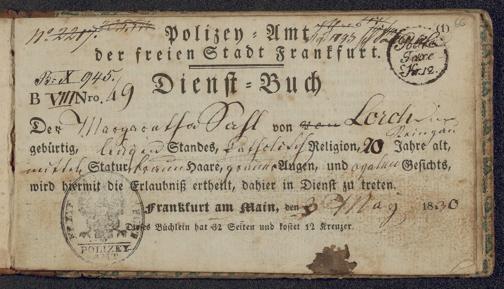 Polizey-Amt
der freien Stadt Frankfurt.
Dienst-Buch
B VIII Nro. 49
Der Margaretha Sahl von Lorch im Rheingau
gebürtig, ledigen Standes, katholisch Religion, 20 Jahre alt,
mittler Statur, braun Haare, graue Augen, und ovalen Gesichts,
wird hiermit die Erlaubniß ertheilt, dahier in Dienst zu treten.
Frankfurt am Main, den 3 May 1830
Dieses Büchlein hat 32 Seiten und kostet 12 Kreuzer.
POLIZEY
AMT